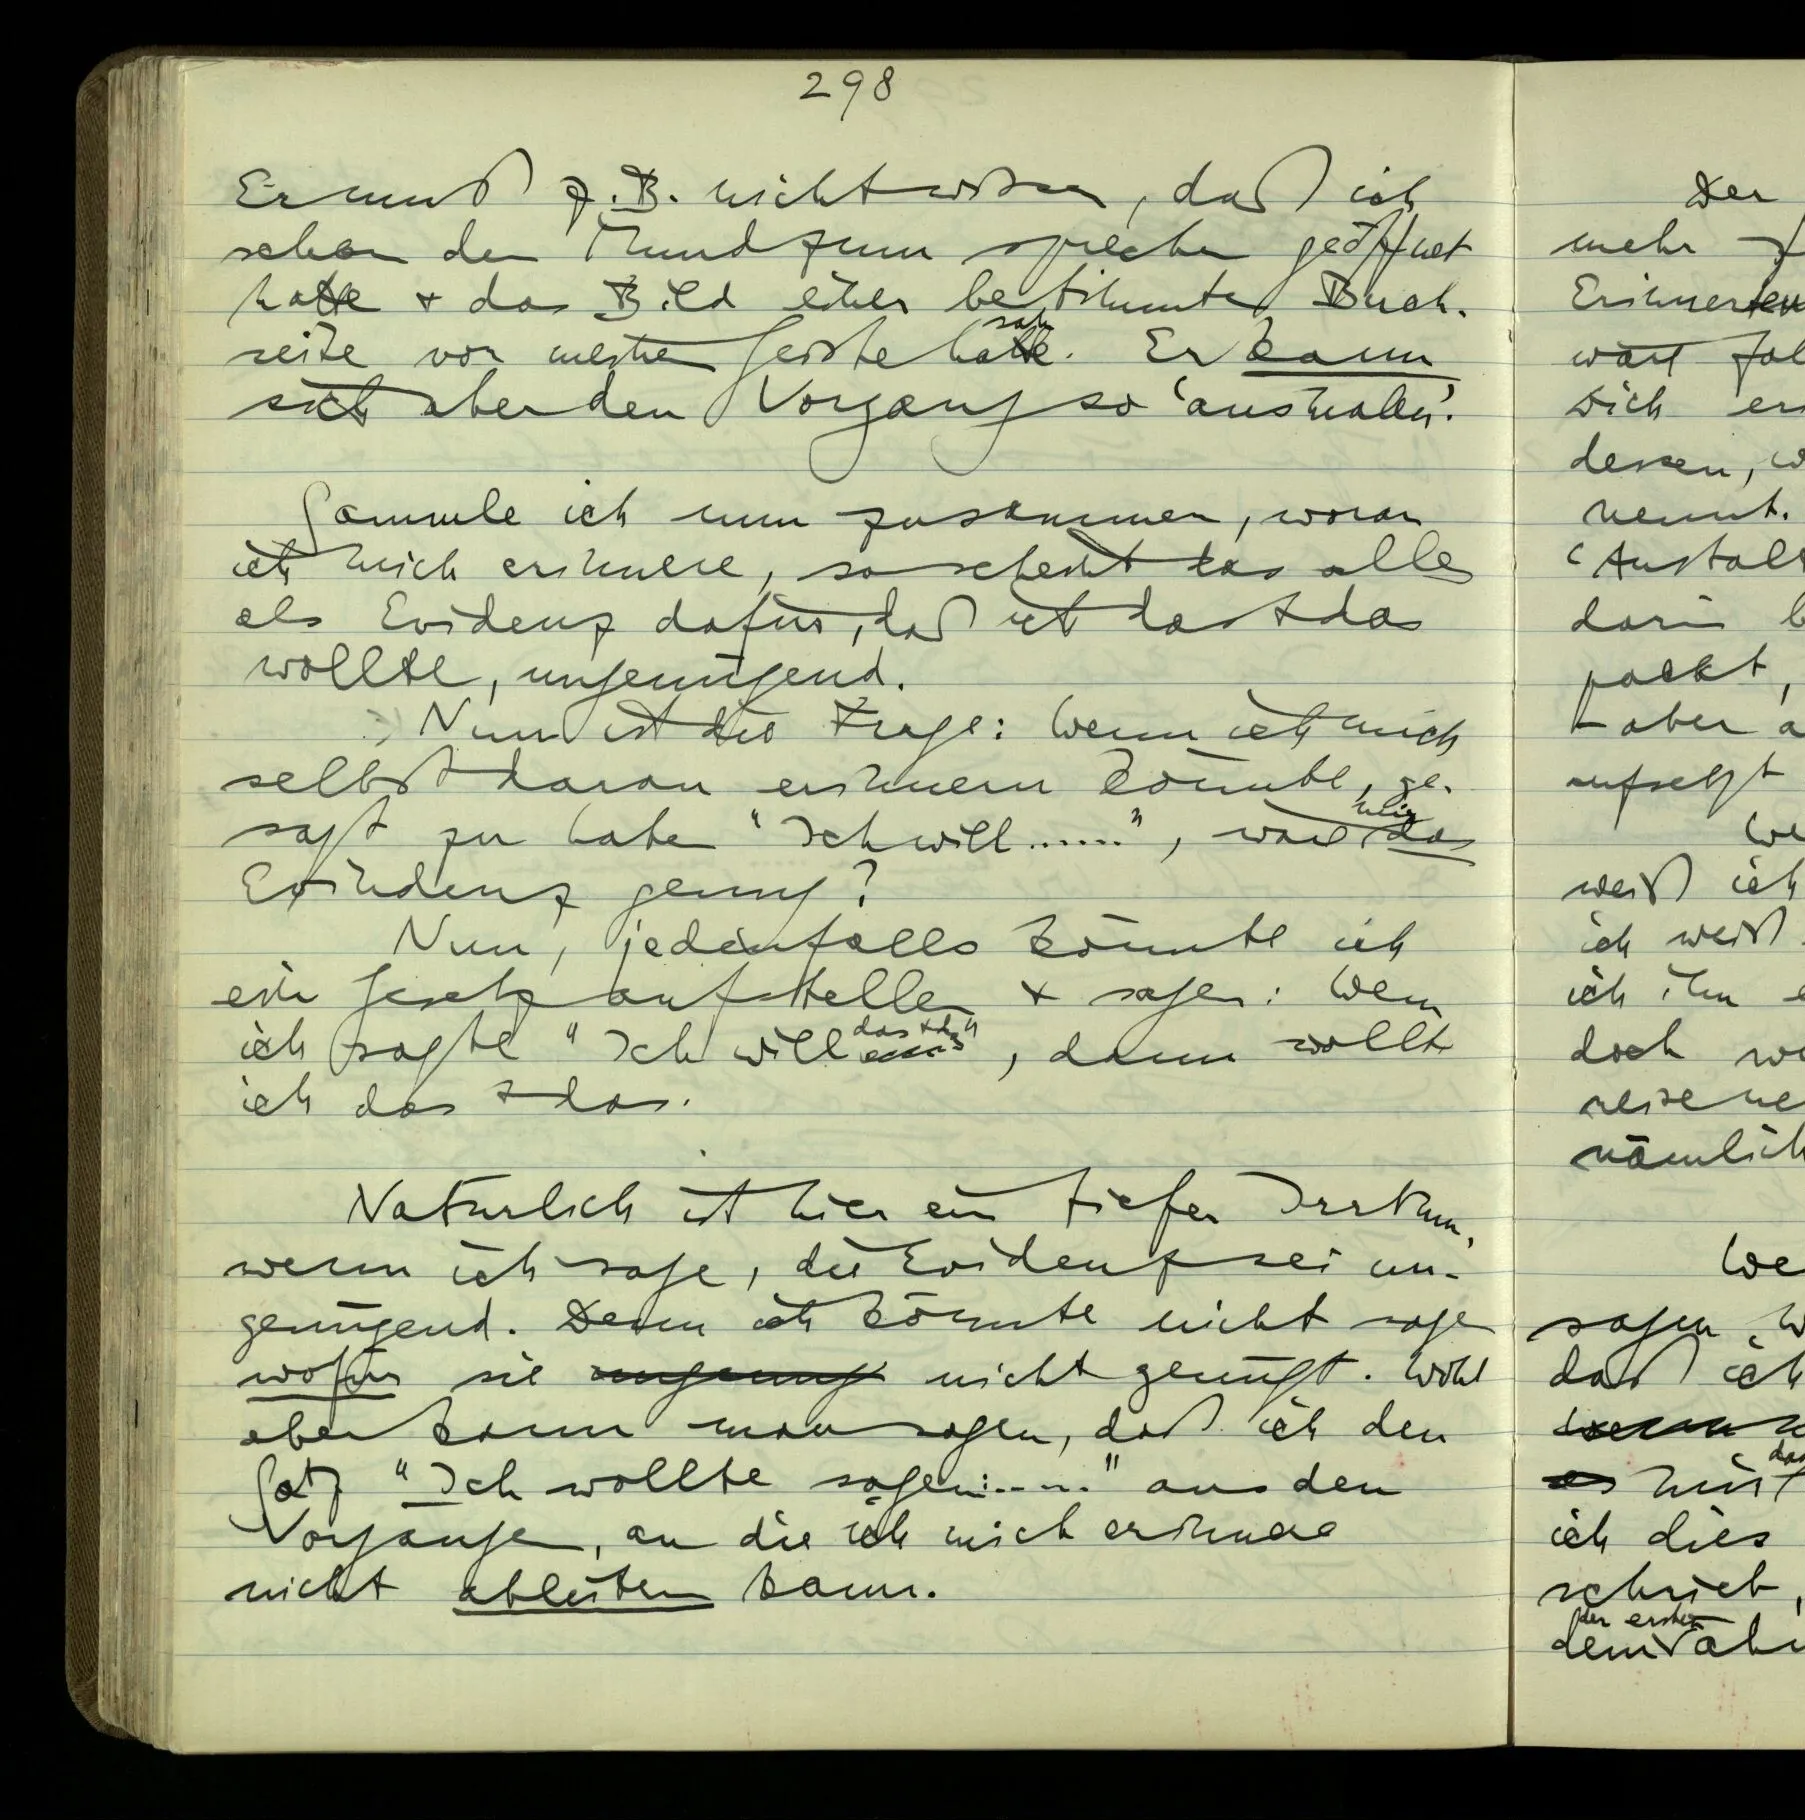 298
Er muß z.B. nicht wissen, daß ich
schon den Mund zum sprechen geöffnet
hatte & das Bild einer bestimmten Buch-
seite vor meinem Geiste sah. Er kann
sich aber den Vorgang so 'ausmalen'.
Sammle ich nun zusammen, woran
ich mich erinnere, so scheint das alles
als Evidenz dafür, daß ich das & das
wollte, ungenügend.
Nun ist die Frage: Wenn ich mich
selbst daran erinnern könnte, ge-
sagt zu haben "Ich will ......", wäre das
Evidenz genug?
Nun, jedenfalls könnte ich
ein Gesetz aufstellen & sagen: Wenn
ich sagte "Ich will das & das", dann wollte
ich das & das.
Natürlich ist hier ein tiefer Irrtum,
wenn ich sage, die Evidenz sei un-
genügend. Denn ich könnte nicht sagen
wofür sie nicht genügt. Wohl
aber kann man sagen, daß ich den
Satz "Ich wollte sagen: ....." aus den
Vorgängen, an die ich mich erinnere
nicht ableiten kann.
Der
mehr
wäre
sich
dessen,
nennt.
darin
packt,
aber
aufsetzt
weiß ich
ich weiß
ich ihn
doch
nämlich
sagen
daß ich
ich dies
schrieb,
der ersten